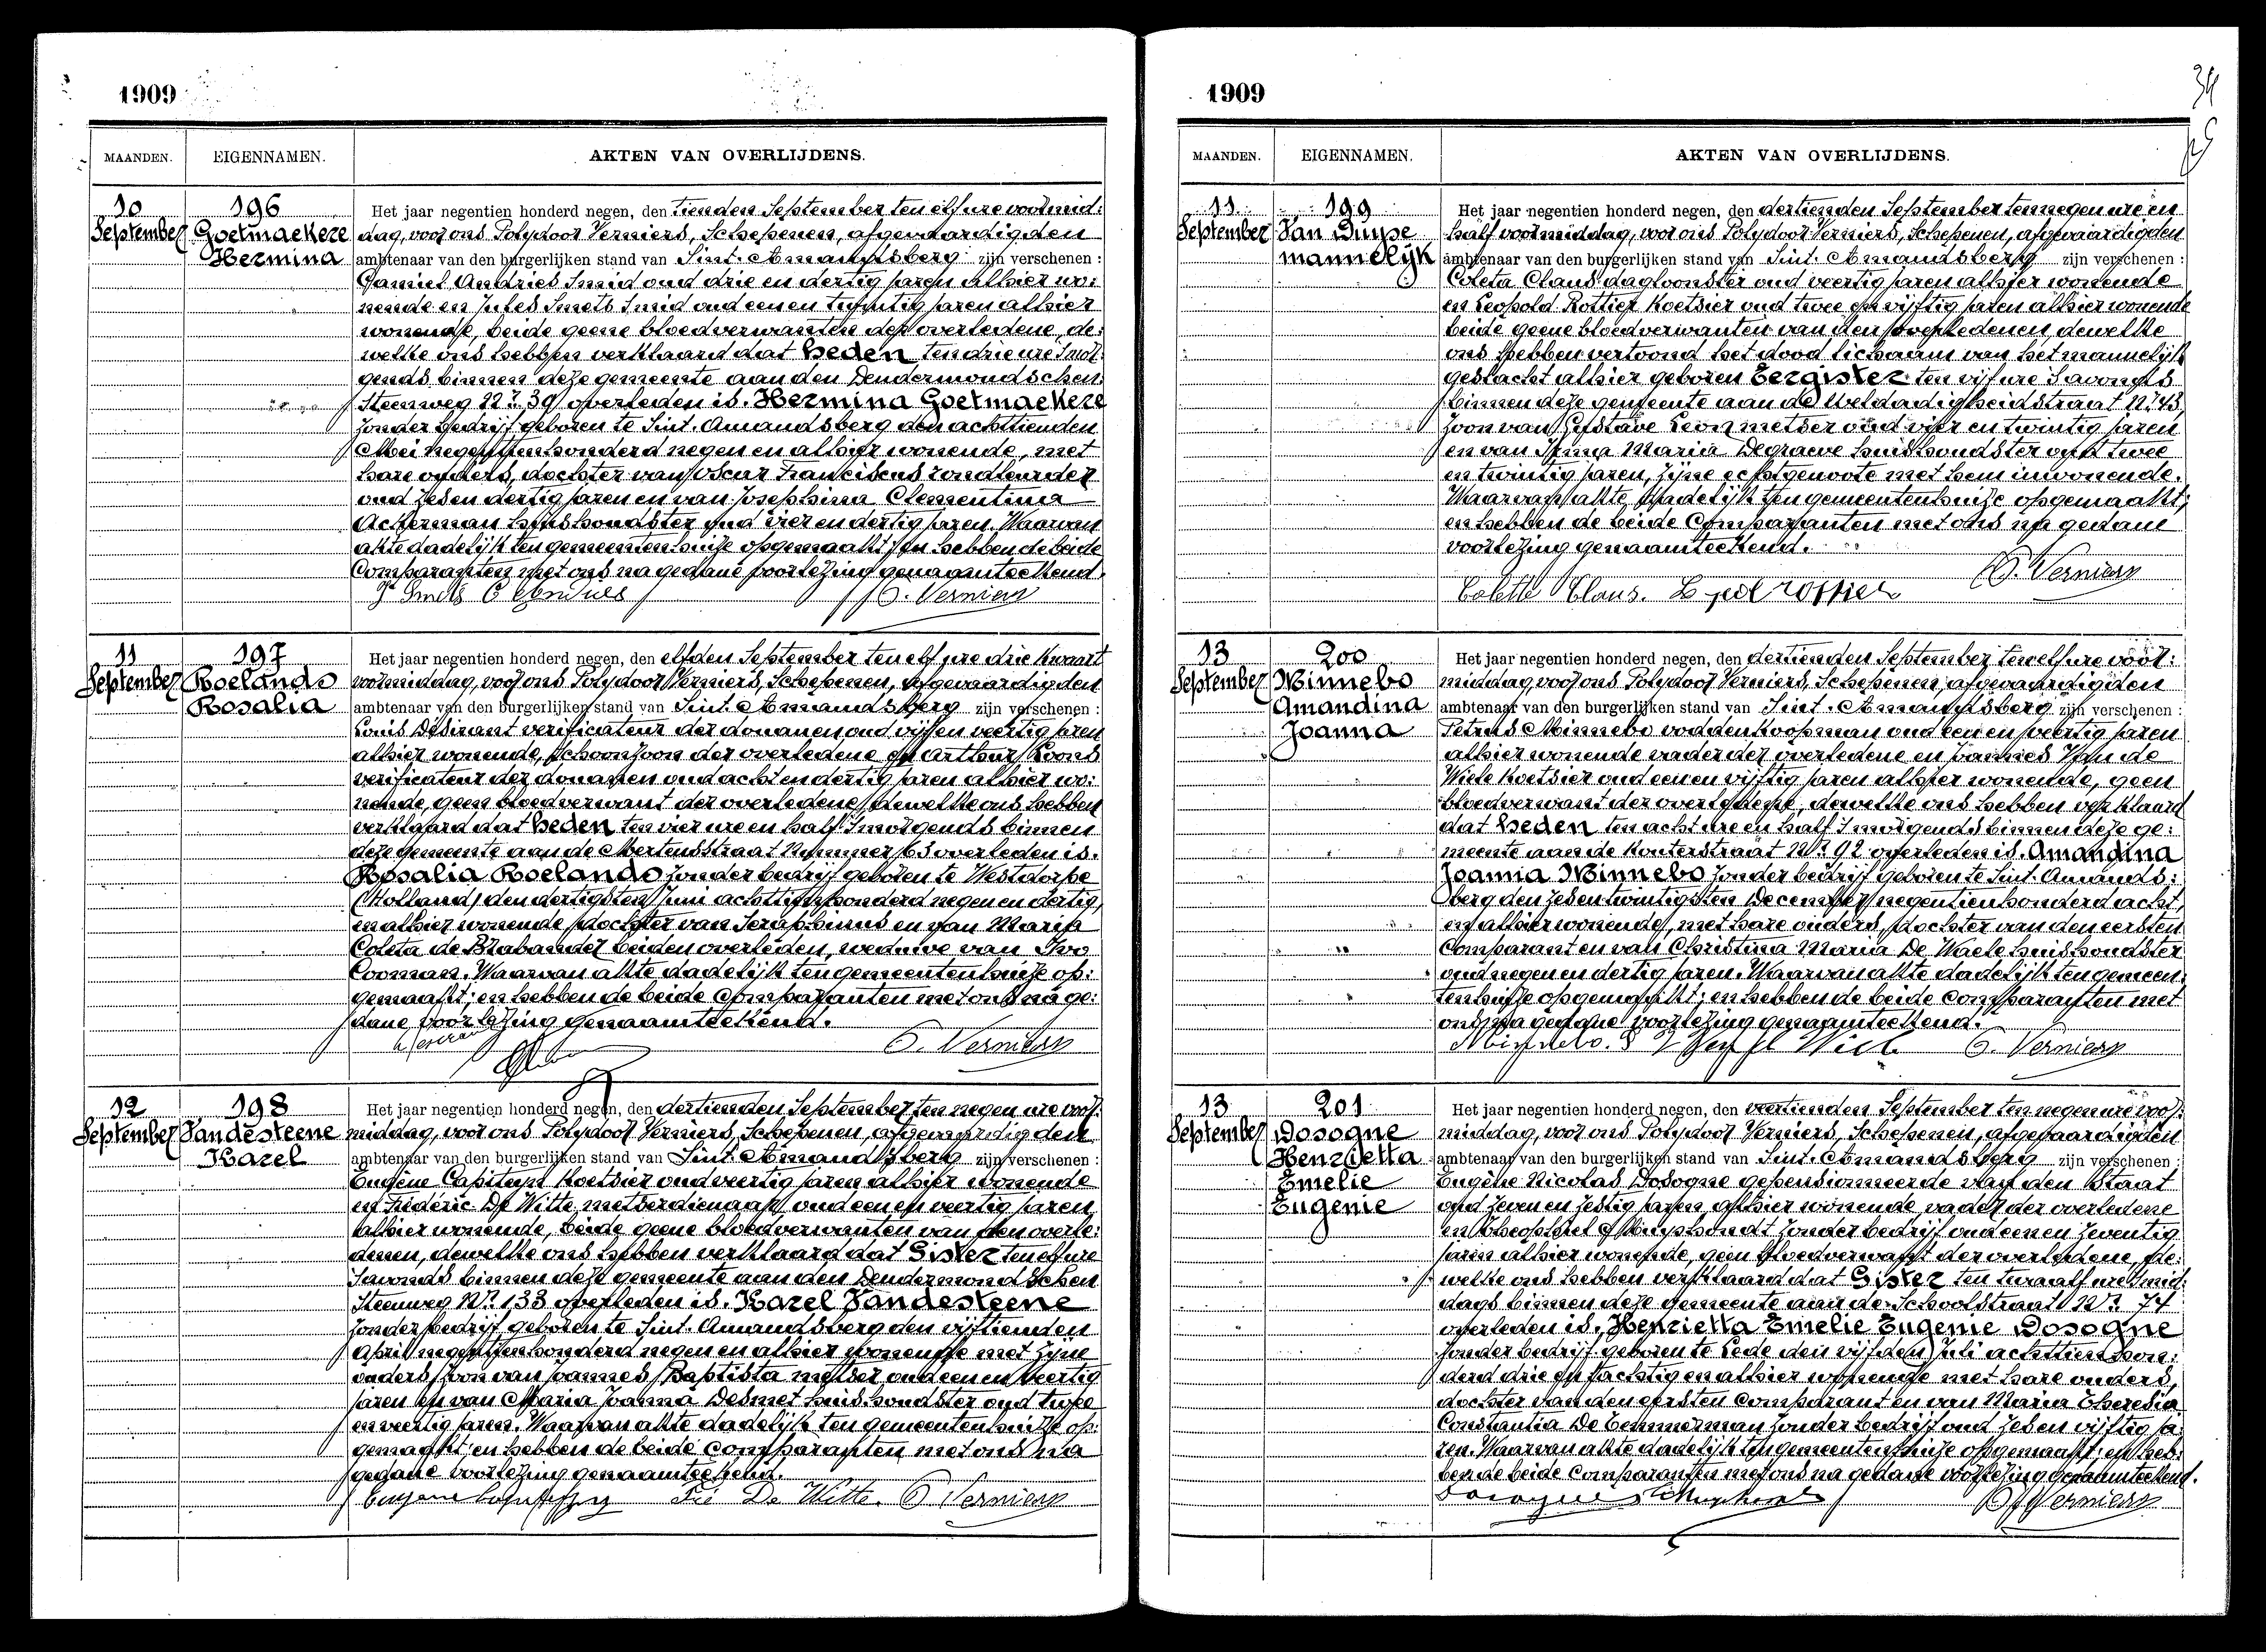 1909
MAANDEN. EIGENNAMEN. AKTEN VAN OVERLIJDENS.
10 September
196
Goetmaekere
Hermina
Het jaar negentien honderd negen, den tienden September ten elf ure voormid:
dag, voor ons Polydoor Verniers, Schepenen, afgevaardigden
ambtenaar van den burgerlijken stand van Sint. Amandsberg zijn verschenen :
Camiel Andries Smid oud drie en dertig jaren alhier wo:
nende en Jules Smets Smid oud een en twintig jaren alhier
wonende, beide geene bloedverwanten der overledene, de:
welke ons hebben verklaard dat heden ten drie ure Smor:
gends binnen deze gemeente aan den Dendermondschen
Steenweg No. 39 overleden is. Hermina Goetmaekere
zonder bedrijf geboren te Sint. Amandsberg den achttienden
Mei negentienhonderd negen en alhier wonende, met
hare ouders, dochter van Oscar Franciskus rondleurder
oud zes en dertig jaren en van Josephina Clementina
Ackerman huishoudster oud vier en dertig jaren. Waarvan
akte dadelijk ten gemeentenhuize opgemaakt; en hebben de beide
Comparanten met ons na gedane voorlezing genaamteekend.
J. Smets C Andries P. Verniers
11 September
197
Roelands
Rosalia
Het jaar negentien honderd negen, den elfden September ten elf ure drie kwaart
voormiddag, voor ons Polydoor Verniers, Schepenen, afgevaardigden
ambtenaar van den burgerlijken stand van Sint. Amandsberg zijn verschenen :
Louis Désirant verificateur der douanen oud vijf en veertig jaren
alhier wonende, schoonzoon der overledene en Arthur Koons
verificateur der douanen oud acht en dertig jaren alhier wo:
nende, geen bloedverwant der overledene, dewelke ons hebben
verklaard dat heden ten vier ure en half Smorgends binnen
deze gemeente aan de Mertensstraat Nummer 63 overleden is.
Rosalia Roelands zonder bedrijf geboren te Westdorpe
(Holland) den dertigsten Juni achttienhonderd negen en dertig,
en alhier wonende, dochter van Seraphinus en van Maria
Coleta de Brabander beiden overleden, weduwe van Ivo
Cooman. Waarvan akte dadelijk ten gemeentenhuize op:
gemaakt; en hebben de beide Comparanten met ons na ge:
dane voorlezing genaamteekend.
P. Verniers
12 September
198
Vandesteene
Karel
Het jaar negentien honderd negen, den dertienden September ten negen ure voor:
middag, voor ons Polydoor Verniers, Schepenen, afgevaardigden
ambtenaar van den burgerlijken stand van Sint. Amandsberg zijn verschenen :
Eugène Capiteyn Koetsier oud veertig jaren alhier wonende
en Fréderic De Witte metserdienaar oud een en veertig jaren
alhier wonende, beide geene bloedverwanten van den overle:
denen, dewelke ons hebben verklaard dat Gister ten elf ure
Savonds binnen deze gemeente aan den Dendermondschen
Steenweg No. 133 overleden is. Karel Vandesteene
zonder bedrijf geboren te Sint. Amandsberg den vijftienden
April negentienhonderd negen en alhier wonende met zijne
ouders, zoon van Joannes Baptista metser oud een en veertig
jaren en van Maria Joanna Desmet huishoudster oud twee
en veertig jaren. Waarvan akte dadelijk ten gemeentenhuize op:
gemaakt; en hebben de beide comparanten met ons na
gedane voorlezing genaamteekend.
Eugene Capiteyn Fré De Witte. P. Verniers
1909
34
MAANDEN. EIGENNAMEN. AKTEN VAN OVERLIJDENS.
11 September
199
Van Duyse
mannelijk
Het jaar negentien honderd negen, den dertienden September ten negen ure en
half voormiddag, voor ons Polydoor Verniers, Schepenen, afgevaardigden
ambtenaar van den burgerlijken stand van Sint. Amandsberg zijn verschenen :
Coleta Claus dagloonster oud veertig jaren alhier wonende
en Leopold Rottier Koetsier oud twee en vijftig jaren alhier wonende
beide geene bloedverwanten van den overledenen, dewelke
ons hebben vertoond het dood lichaam van het mannelijk
geslacht alhier geboren Eergister ten vijf ure Savonds
binnen deze gemeente aan de Weldadigheidstraat No. 43,
zoon van Gustave Leon metser oud vier en twintig jaren
en van Irma Maria Degraeve huishoudster oud twee
en twintig jaren, zijne echtgenoote met hem inwonende.
Waarvan akte dadelijk ten gemeentenhuize opgemaakt;
en hebben de beide Comparanten met ons na gedane
voorlezing genaamteekend.
P. Verniers
Colette Claus. Leopold Rottier
13 September
200
Minnebo
Amandina
Joanna
Het jaar negentien honderd negen, den dertienden September ten elf ure voor:
middag, voor ons Polydoor Verniers, Schepenen, afgevaardigden
ambtenaar van den burgerlijken stand van Sint. Amandsberg zijn verschenen :
Petrus Minnebo voddenkoopman oud een en veertig jaren
alhier wonende vader der overledene en Joannes Van de
Wiele Koetsier oud een en vijftig jaren alhier wonende, geen
bloedverwant der overledene, dewelke ons hebben verklaard
dat heden ten acht ure en half Smorgends binnen deze ge:
meente aan de Kouterstraat No. 92 overleden is. Amandina
Joanna Minnebo zonder bedrijf geboren te Sint. Amands:
berg den zes en twintigsten December negentienhonderd acht,
en alhier wonende, met hare ouders, dochter van den eersten
Comparant en van Christina Maria De Waele huishoudster
oud negen en dertig jaren. Waarvan akte dadelijk ten gemeen:
tenhuize opgemaakt; en hebben de beide Comparanten met
ons na gedane voorlezing genaamteekend.
Minnebo. P. P. Verniers
13 September
201
Dosogne
Henrietta
Emelie
Eugenie
Het jaar negentien honderd negen, den veertienden September ten negen ure voor:
middag, voor ons Polydoor Verniers, Schepenen, afgevaardigden
ambtenaar van den burgerlijken stand van Sint. Amandsberg zijn verschenen :
Eugène Nicolas Dosogne gepensionneerde van den Staat
oud zeven en zestig jaren, alhier wonende vader der overledene
en Theophiel Muyshondt zonder bedrijf oud een en zeventig
jaren alhier wonende, geen bloedverwant der overledene, de:
welke ons hebben verklaard dat Gister ten twaalf ure Smid:
dags binnen deze gemeente aan de Schoolstraat No. 74
overleden is. Henrietta Emelie Eugenie Dosogne
zonder bedrijf geboren te Lede den vijfden Juli achttienhon:
derd drie en tachtig en alhier wonende met hare ouders,
dochter van den eersten Comparant en van Maria Theresia
Constantia De Temmerman zonder bedrijf oud zes en vijftig ja:
ren. Waarvan akte dadelijk ten gemeentenhuize opgemaakt; en heb:
ben de beide Comparanten met ons na gedane voorlezing genaamteekend.
Dosogne P. Verniers